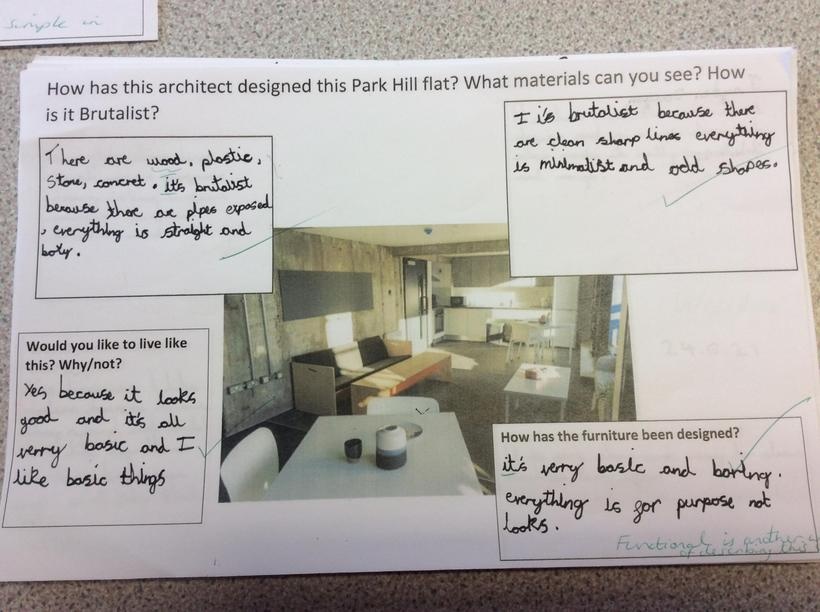 simple in
How has this architect designed this Park Hill flat? What materials can you see? How
is it Brutalist?
There are wood, plastic,
stone, concret. it's brutalist
because there are pipes exposed
, everything is straight and
boxy.
I is brutalist because there
are clean sharp lines everything
is minimalist and odd shapes.
Would you like to live like
this? Why/not?
Yes because it looks
good and it's all
verry basic and I
like basic things
How has the furniture been designed?
it's verry basic and boring.
everything is for purpose not
looks.
Functional is another
of describing this